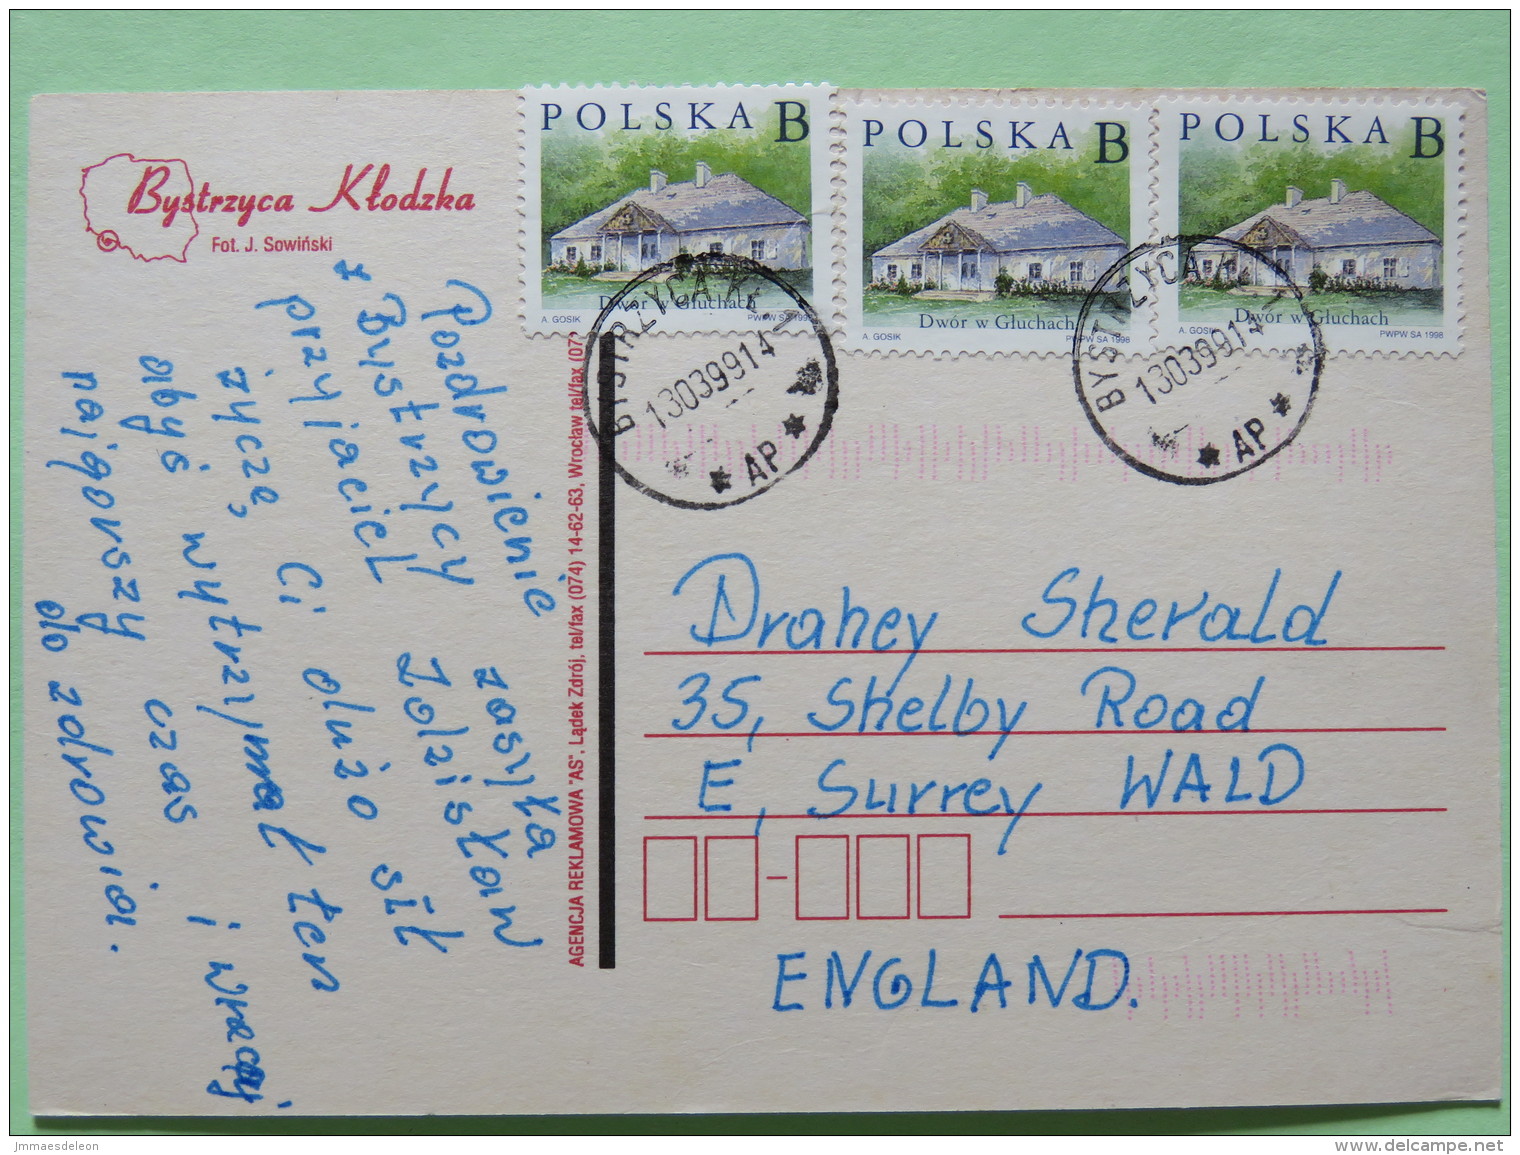 POLSKA B
Dwór w Głuchach
A. GOSIK
PWPW SA 1998
POLSKA B
Dwór w Głuchach
A. GOSIK
PWPW SA 1998
POLSKA B
Dwór w Głuchach
A. GOSIK
PWPW SA 1998
Bystrzyca Kłodzka
Fot. J. Sowiński
BYSTRZYCA KŁ. 1
130399 14
AP
BYSTRZYCA KŁ. 1
130399 14
AP
Pozdrowienie zasyła
z Bystrzycy Zdzisław
przyjaciel
życzę, Ci dużo sił
abyś wytrzymał ten
najgorszy czas i wracaj
do zdrowia.
AGENCJA REKLAMOWA "AS", Lądek Zdrój, tel/fax (074) 14-62-63, Wrocław tel/fax (07
Drahey Sherald
35, Shelby Road
E, Surrey WALD
ENGLAND.
jmmaesdeleon
delcampe.net